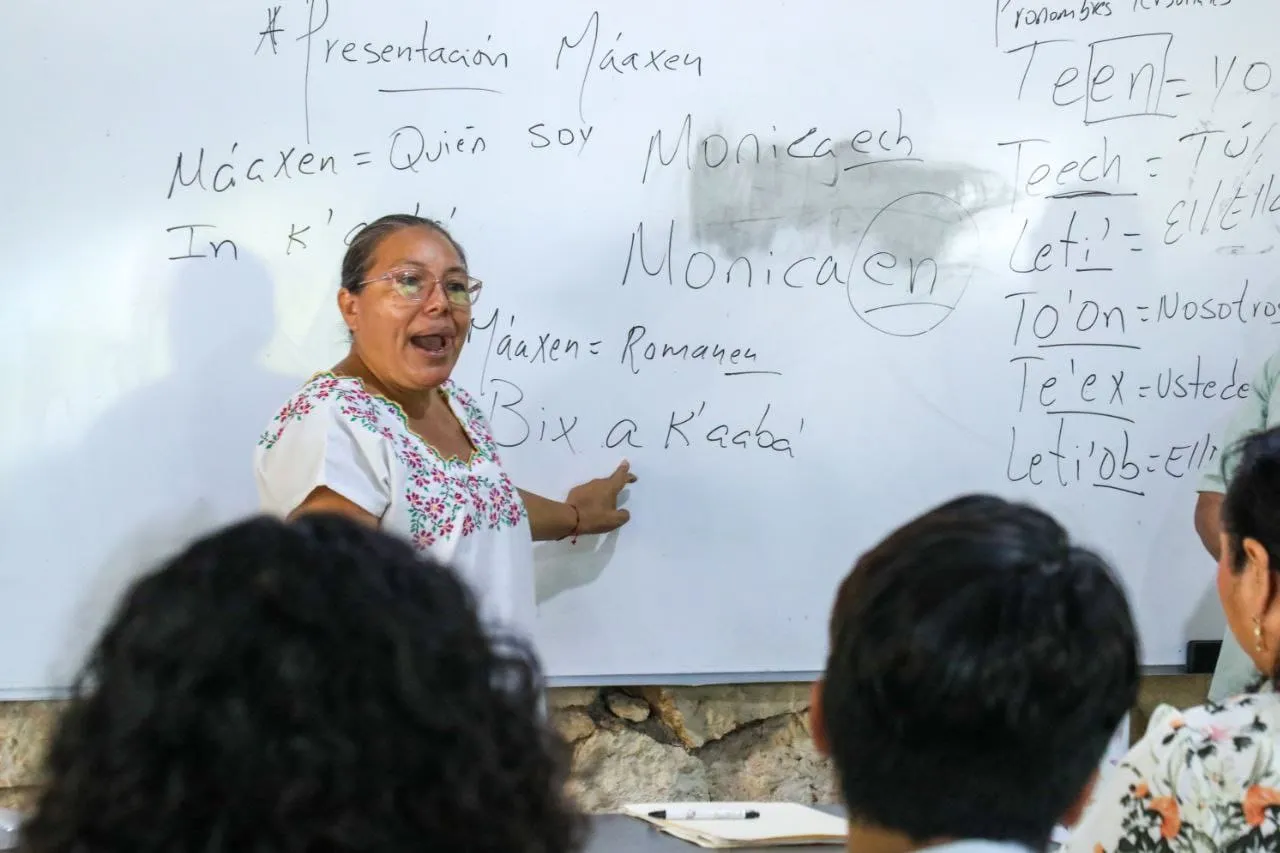 * Presentación Máaxen
Máaxen = Quién soy
In
Monicaech
Monicaen
Máaxen = Romanen
Bix a K'aaba'
Pronombres
Teen = Yo
Teech = Tú/
Leti' = El/Ella
To'on = Nosotros
Te'ex = Ustede
Leti'ob =